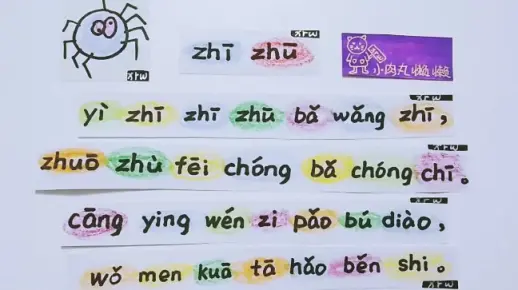 xrw
zhī zhū
xrw
小肉丸懒懒
xrw
yì zhī zhī zhū bǎ wǎng zhī，
xrw
zhuō zhù fēi chóng bǎ chóng chī。
xrw
cāng ying wén zi pǎo bú diào，
wǒ men kuā tā hǎo běn shi。
xrw